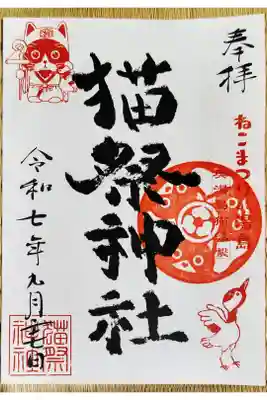 奉拝
ねこまつり
猫祭神社
令和七年九月
猫祭
神社